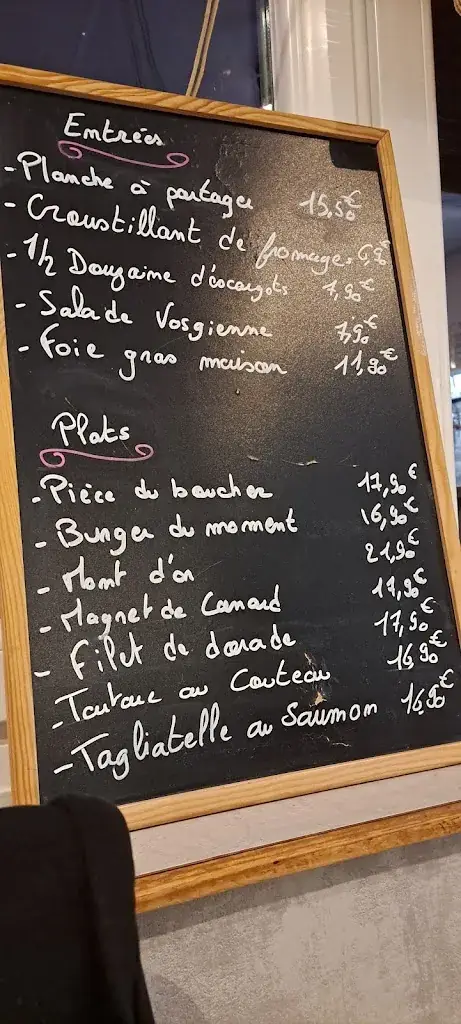 Entrées
- Planche à partager 15,50€
- Croustillant de fromage. 6,90€
- 1/2 Douzaine d'escargots 7,90€
- Salade Vosgienne 7,90€
- Foie gras maison 11,90€
Plats
- Pièce du boucher 17,90€
- Burger du moment 16,90€
- Mont d'or 21,90€
- Magret de Canard 17,90€
- Filet de dorade 17,90€
- Tartare au Couteau 16,90€
- Tagliatelle au Saumon 16,90€